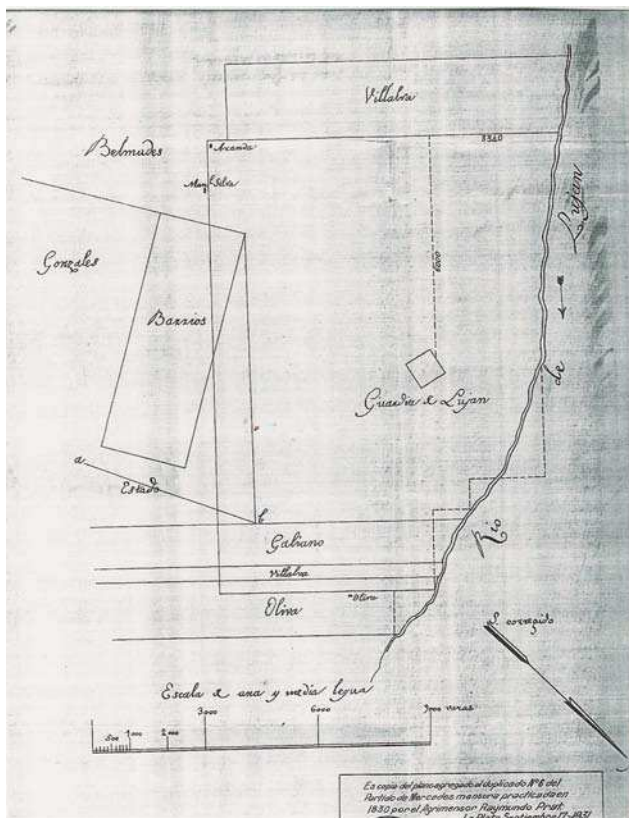 Villalva
Belmudes
Aranda
8340
Manl Silva
Lujan
Gonzales
6000
Barrios
de
Guardia de Lujan
a
Estado
b
Galiano
Rio
Villalva
Oliva
Oliva
S. corregido
Escala de una y media legua
500 1000 2000 3000 6000 9000 varas
Es copia del plano agregado al duplicado Nº 6 del
Partido de Mercedes mensura practicada en
1830 por el Agrimensor Raymundo Prat
La Plata Septiembre 17-1931